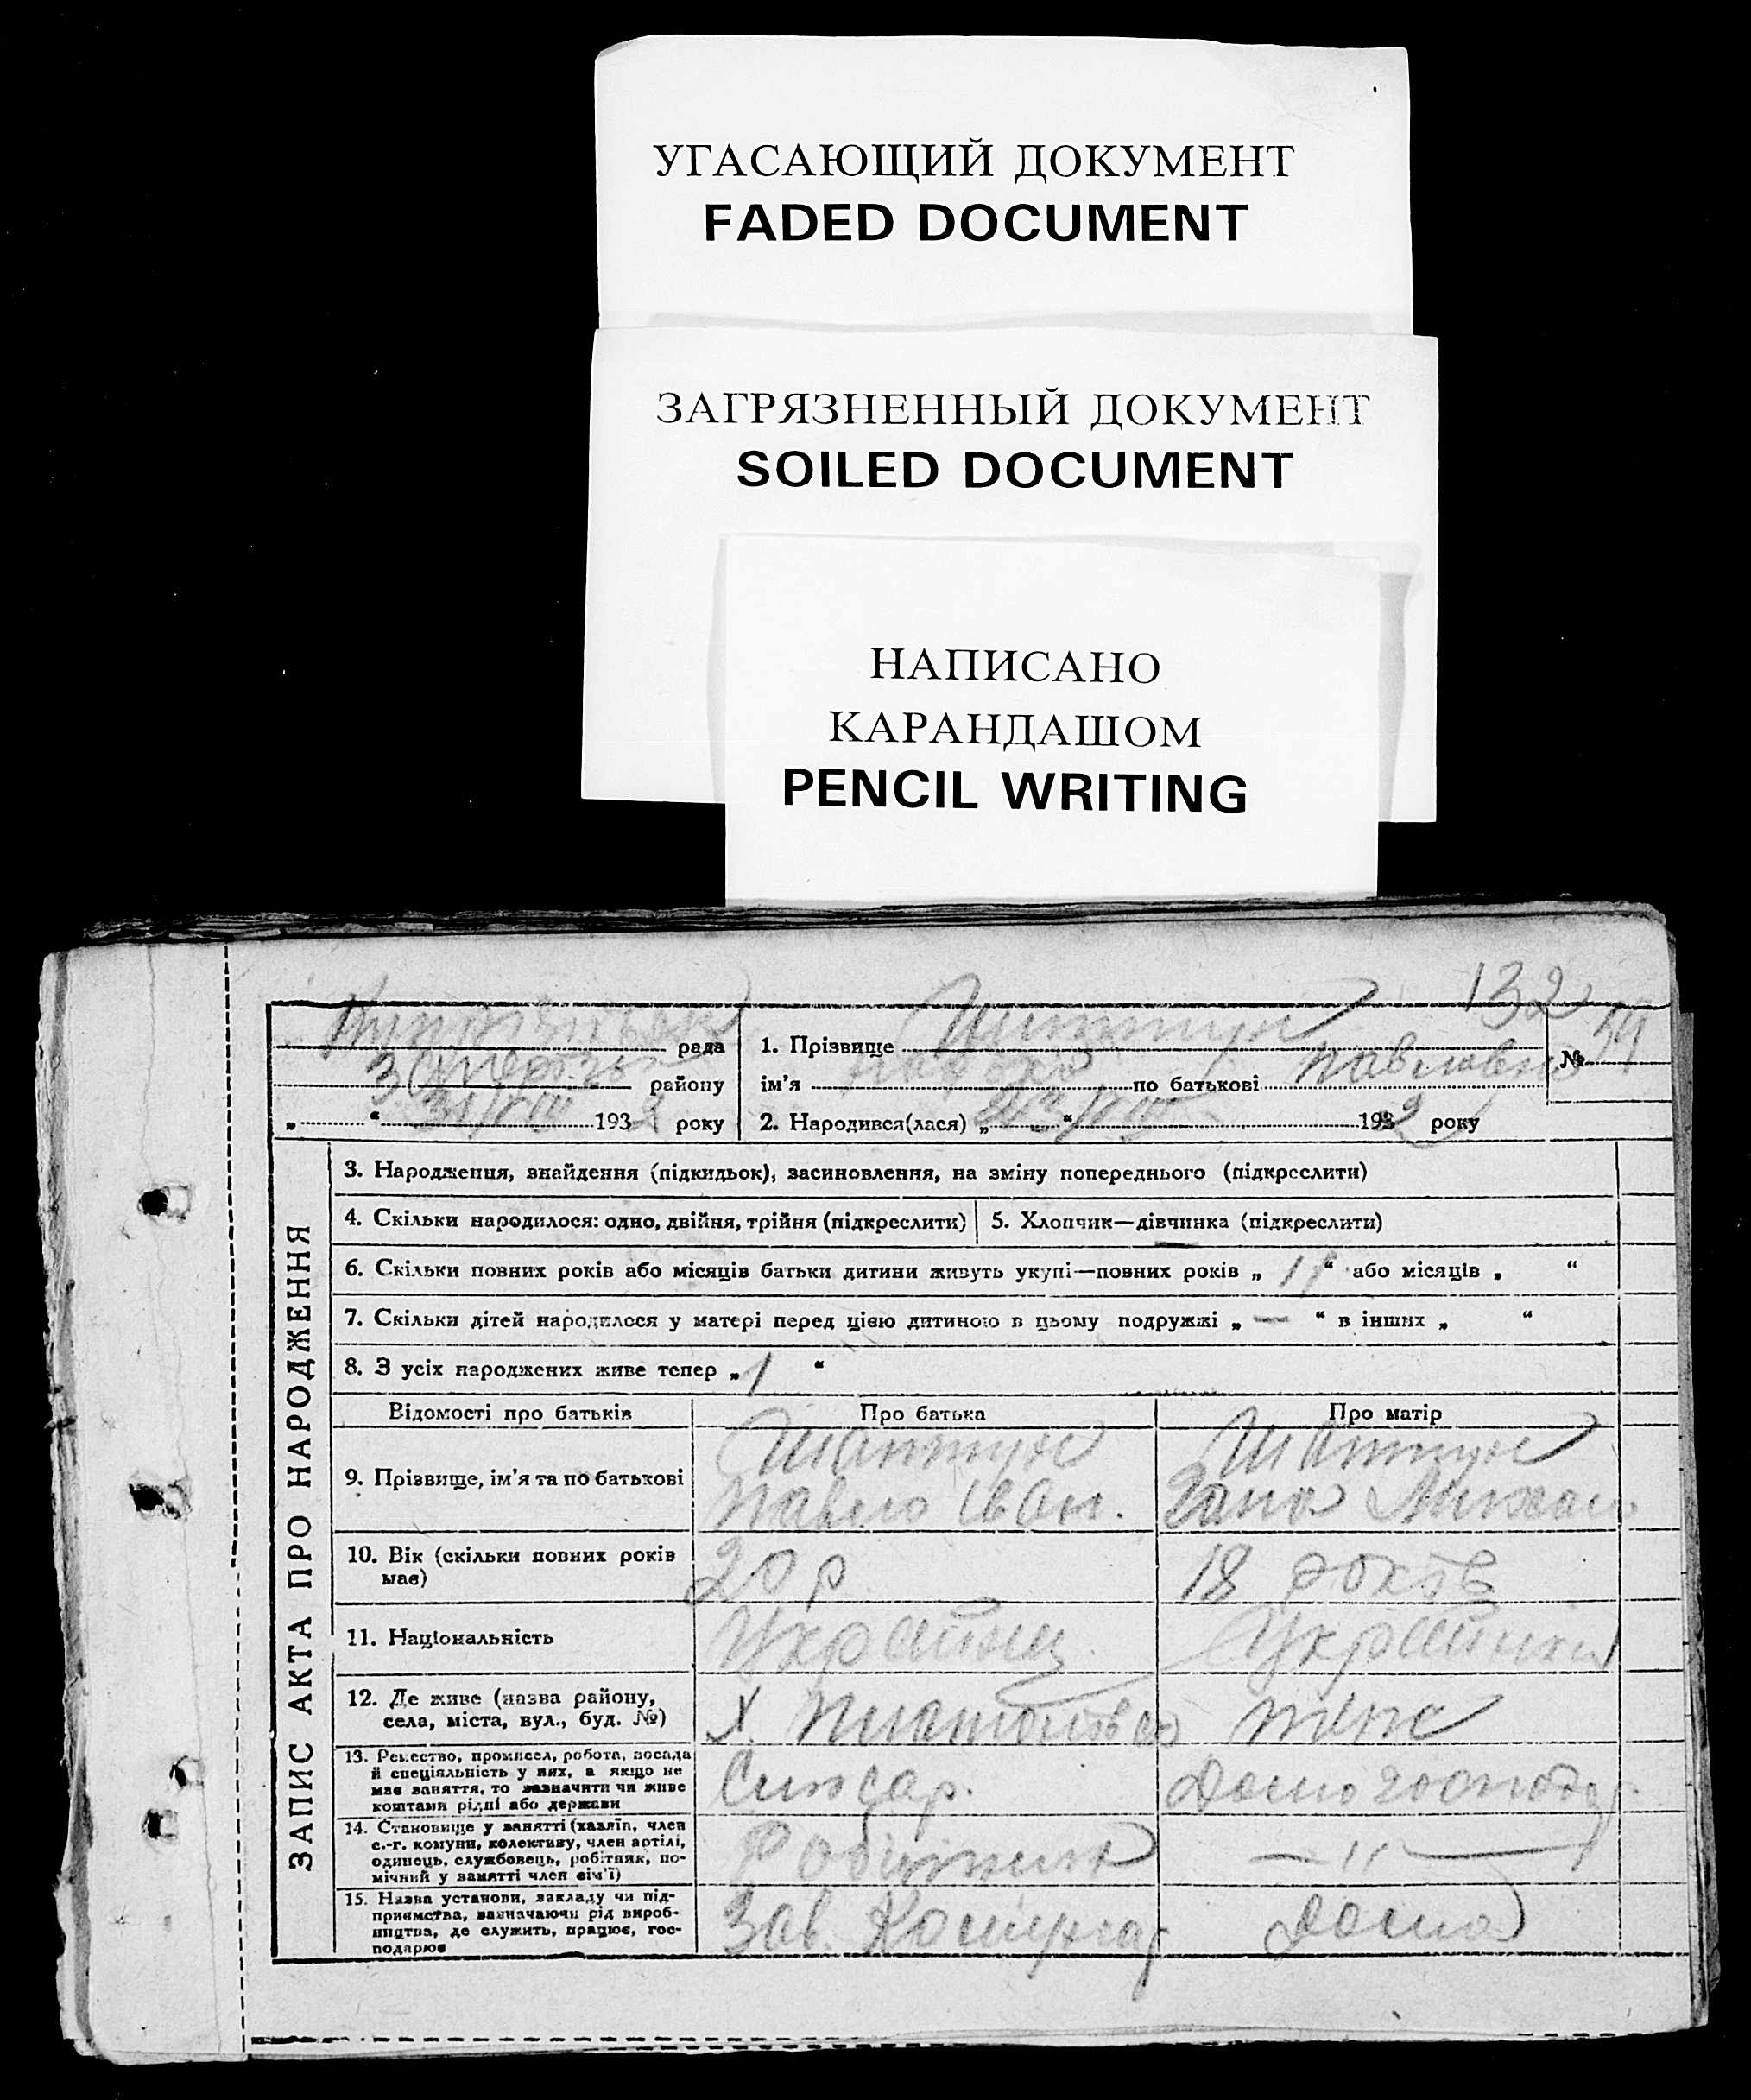 УГАСАЮЩИЙ ДОКУМЕНТ
FADED DOCUMENT
ЗАГРЯЗНЕННЫЙ ДОКУМЕНТ
SOILED DOCUMENT
НАПИСАНО
КАРАНДАШОМ
PENCIL WRITING
132
рада
району
„ “ 31/VIII 1932 року
1. Прізвище
№ 59
ім'я по батькові Павловна
2. Народився(лася) „ 23/VIII “ 1932 року
ЗАПИС АКТА ПРО НАРОДЖЕННЯ
3. Народження, знайдення (підкидьок), засиновлення, на зміну попереднього (підкреслити)
4. Скільки народилося: одно, двійня, трійня (підкреслити)
5. Хлопчик—дівчинка (підкреслити)
6. Скільки повних років або місяців батьки дитини живуть укупі—повних років „ 1 “ або місяців „ “
7. Скільки дітей народилося у матері перед цією дитиною в цьому подружжі „ — “ в інших „ “
8. З усіх народжених живе тепер „ 1 “
Відомості про батьків
Про батька
Про матір
9. Прізвище, ім'я та по батькові
Шаптун
Павло Іван.
Шаптун
10. Вік (скільки повних років
має)
20 р
18 років
11. Національність
Українец
Українка
12. Де живе (назва району,
села, міста, вул., буд. №)
х.
тапе
13. Ремество, промисел, робота, посада
й спеціяльність у них, а якщо не
має заняття, то зазначити чи живе
коштами рідні або держави
Слюсар.
Домогоспода
14. Становище у занятті (хазяїн, член
с.-г. комуни, колективу, член артілі,
одинець, службовець, робітник, по-
мічний у занятті член сім'ї)
Робитник
— " —
15. Назва установи, закладу чи під-
приємства, зазначаючи рід вироб-
ництва, де служить, працює, гос-
подарює
Зав.
Дома